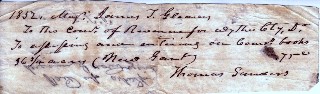 1852. Majr. James T. Gleaves
To the Comr. of Revenue for Wythe Cty, Dr.
To assessing and entering on Comrs. books
363 acres (New Grant) 75 cts
Thomas Sanders